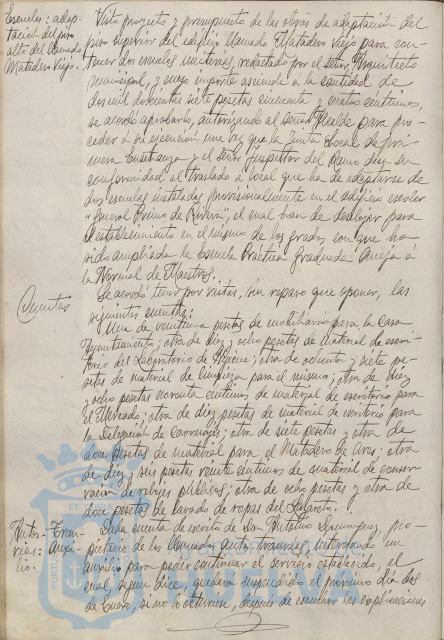 Escuelas: adap-
tación del piso
alto del llamado
Matadero Viejo.
Visto proyecto y presupuesto de las obras de adaptación del
piso superior del edificio llamado Matadero Viejo para con-
tener dos escuelas unitarias, redactado por el señor Arquitecto
municipal, y cuyo importe asciende a la cantidad de
dos mil doscientas siete pesetas cincuenta y cuatro céntimos,
se acordó aprobarlo, autorizando al señor Alcalde para pro-
ceder a su ejecución una vez que la Junta Local de pri-
mera Enseñanza y el Señor Inspector del Ramo den su
conformidad al traslado a local que ha de adaptarse de
dos escuelas instaladas provisionalmente en el edificio escolar
General Primo de Rivera, el cual han de desalojar para
el establecimiento en el mismo de los grados con que ha
sido ampliada la Escuela Práctica Graduada Aneja a
la Normal de Maestros.
Cuentas
Se acordó tener por vistas, sin reparo que oponer, las
siguientes cuentas:
Una de veintiuna pesetas de mobiliario para la Casa
Ayuntamiento; otra de diez y ocho pesetas de material de escri-
torio del Laboratorio de Higiene; otra de ochenta y siete pe-
setas de material de limpieza para el mismo; otra de diez
y ocho pesetas noventa céntimos de material de escritorio para
el Mercado; otra de diez pesetas de material de escritorio para
la Delegación de Carruajes; otra de siete pesetas y otra de
doce pesetas de material para el Matadero de Aves; otra
de diez y seis pesetas veinte céntimos de material de conser-
vación de relojes públicos; otra de ocho pesetas y otra de
doce pesetas de lavado de ropas del Lazareto.
Autos-Tran-
vías: Auxi-
lio.
Dada cuenta de escrito de Don Antolín Domínguez, pro-
pietario de los llamados autos-tranvías, interesando un
auxilio para poder continuar el servicio establecido, el
cual, según dice, quedará suspendido el próximo día dos
de Enero, si no lo obtuviese, después de escuchar las explicaciones